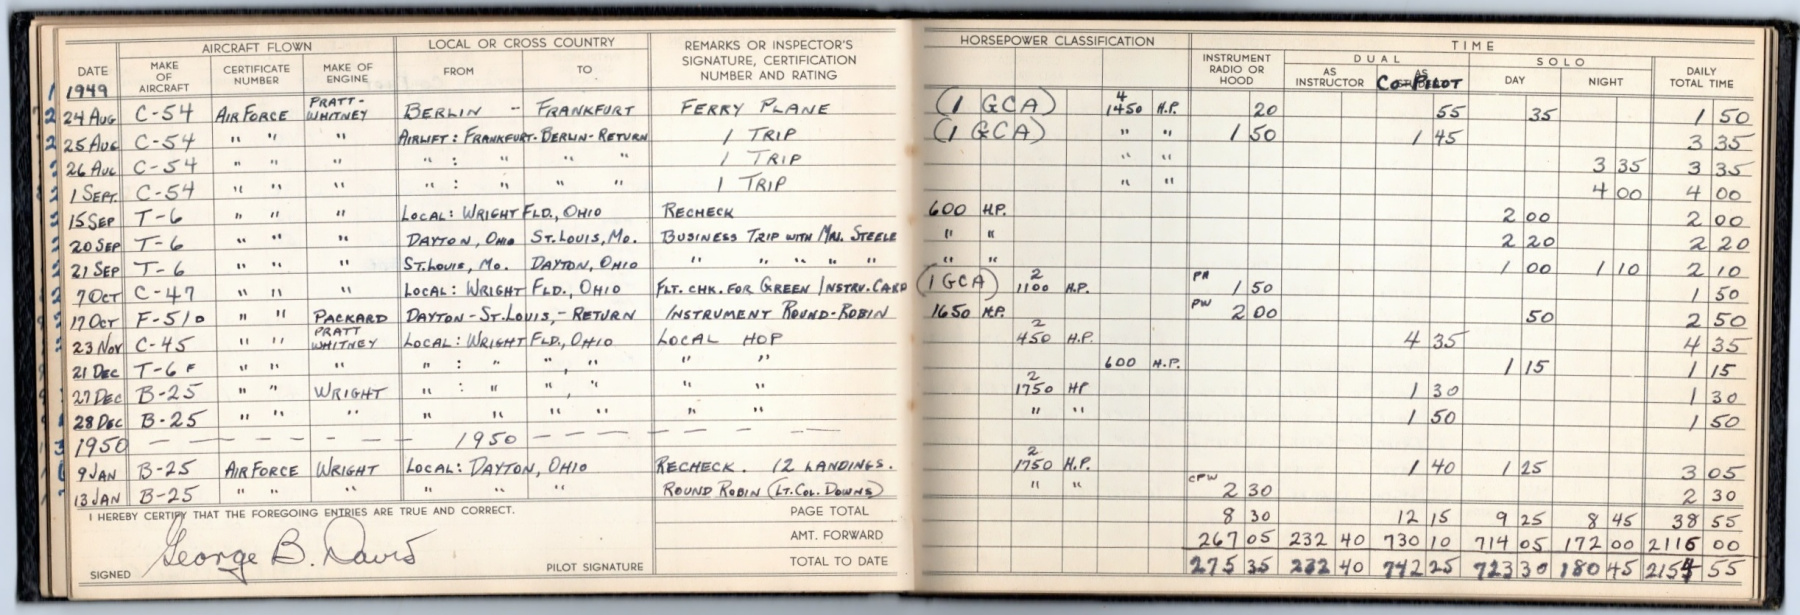 AIRCRAFT FLOWN LOCAL OR CROSS COUNTRY REMARKS OR INSPECTOR'S SIGNATURE, CERTIFICATION NUMBER AND RATING HORSEPOWER CLASSIFICATION TIME
INSTRUMENT RADIO OR HOOD DUAL SOLO DAILY TOTAL TIME
DATE MAKE OF AIRCRAFT CERTIFICATE NUMBER MAKE OF ENGINE FROM TO AS INSTRUCTOR AS CO-PILOT DAY NIGHT
1949
24 AUG C-54 AIR FORCE PRATT-WHITNEY BERLIN - FRANKFURT FERRY PLANE (1 GCA) 4 1450 H.P. 20 55 35 1 50
25 AUG C-54 " " " AIRLIFT: FRANKFURT-BERLIN-RETURN 1 TRIP (1 GCA) " " 1 50 1 45 3 35
26 AUG C-54 " " " " : " " " 1 TRIP " " 3 35 3 35
1 SEPT. C-54 " " " " : " " " 1 TRIP " " 4 00 4 00
15 SEP T-6 " " " LOCAL: WRIGHT FLD., OHIO RECHECK 600 H.P. 2 00 2 00
20 SEP T-6 " " " DAYTON, OHIO ST. LOUIS, MO. BUSINESS TRIP WITH MRS. STEELE " " 2 20 2 20
21 SEP T-6 " " " ST. LOUIS, MO. DAYTON, OHIO " " " " " " " 1 00 1 10 2 10
7 OCT C-47 " " " LOCAL: WRIGHT FLD., OHIO FLT. CHK. FOR GREEN INSTRU. CARD (1 GCA) 2 1100 H.P. PW 1 50 1 50
17 OCT F-51D " " PACKARD DAYTON - ST. LOUIS, - RETURN INSTRUMENT ROUND-ROBIN 1650 H.P. PW 2 00 50 2 50
23 NOV C-45 " " PRATT WHITNEY LOCAL: WRIGHT FLD., OHIO LOCAL HOP 2 450 H.P. 4 35 4 35
21 DEC T-6F " " " " : " " , " " " 600 H.P. 1 15 1 15
27 DEC B-25 " " WRIGHT " : " " , " " " 2 1750 HP 1 30 1 30
28 DEC B-25 " " " " " " " " " " " 1 50 1 50
1950 — — — — — — 1950 — — — — — — —
9 JAN B-25 AIR FORCE WRIGHT LOCAL: DAYTON, OHIO RECHECK. 12 LANDINGS. 2 1750 H.P. 1 40 1 25 3 05
13 JAN B-25 " " " " " " ROUND ROBIN (LT. COL. DOWNS) " " CPW 2 30 2 30
I HEREBY CERTIFY THAT THE FOREGOING ENTRIES ARE TRUE AND CORRECT. PAGE TOTAL 8 30 12 15 9 25 8 45 38 55
AMT. FORWARD 267 05 232 40 730 10 714 05 172 00 2116 00
SIGNED George B. Davis PILOT SIGNATURE TOTAL TO DATE 275 35 232 40 742 25 723 30 180 45 2154 55